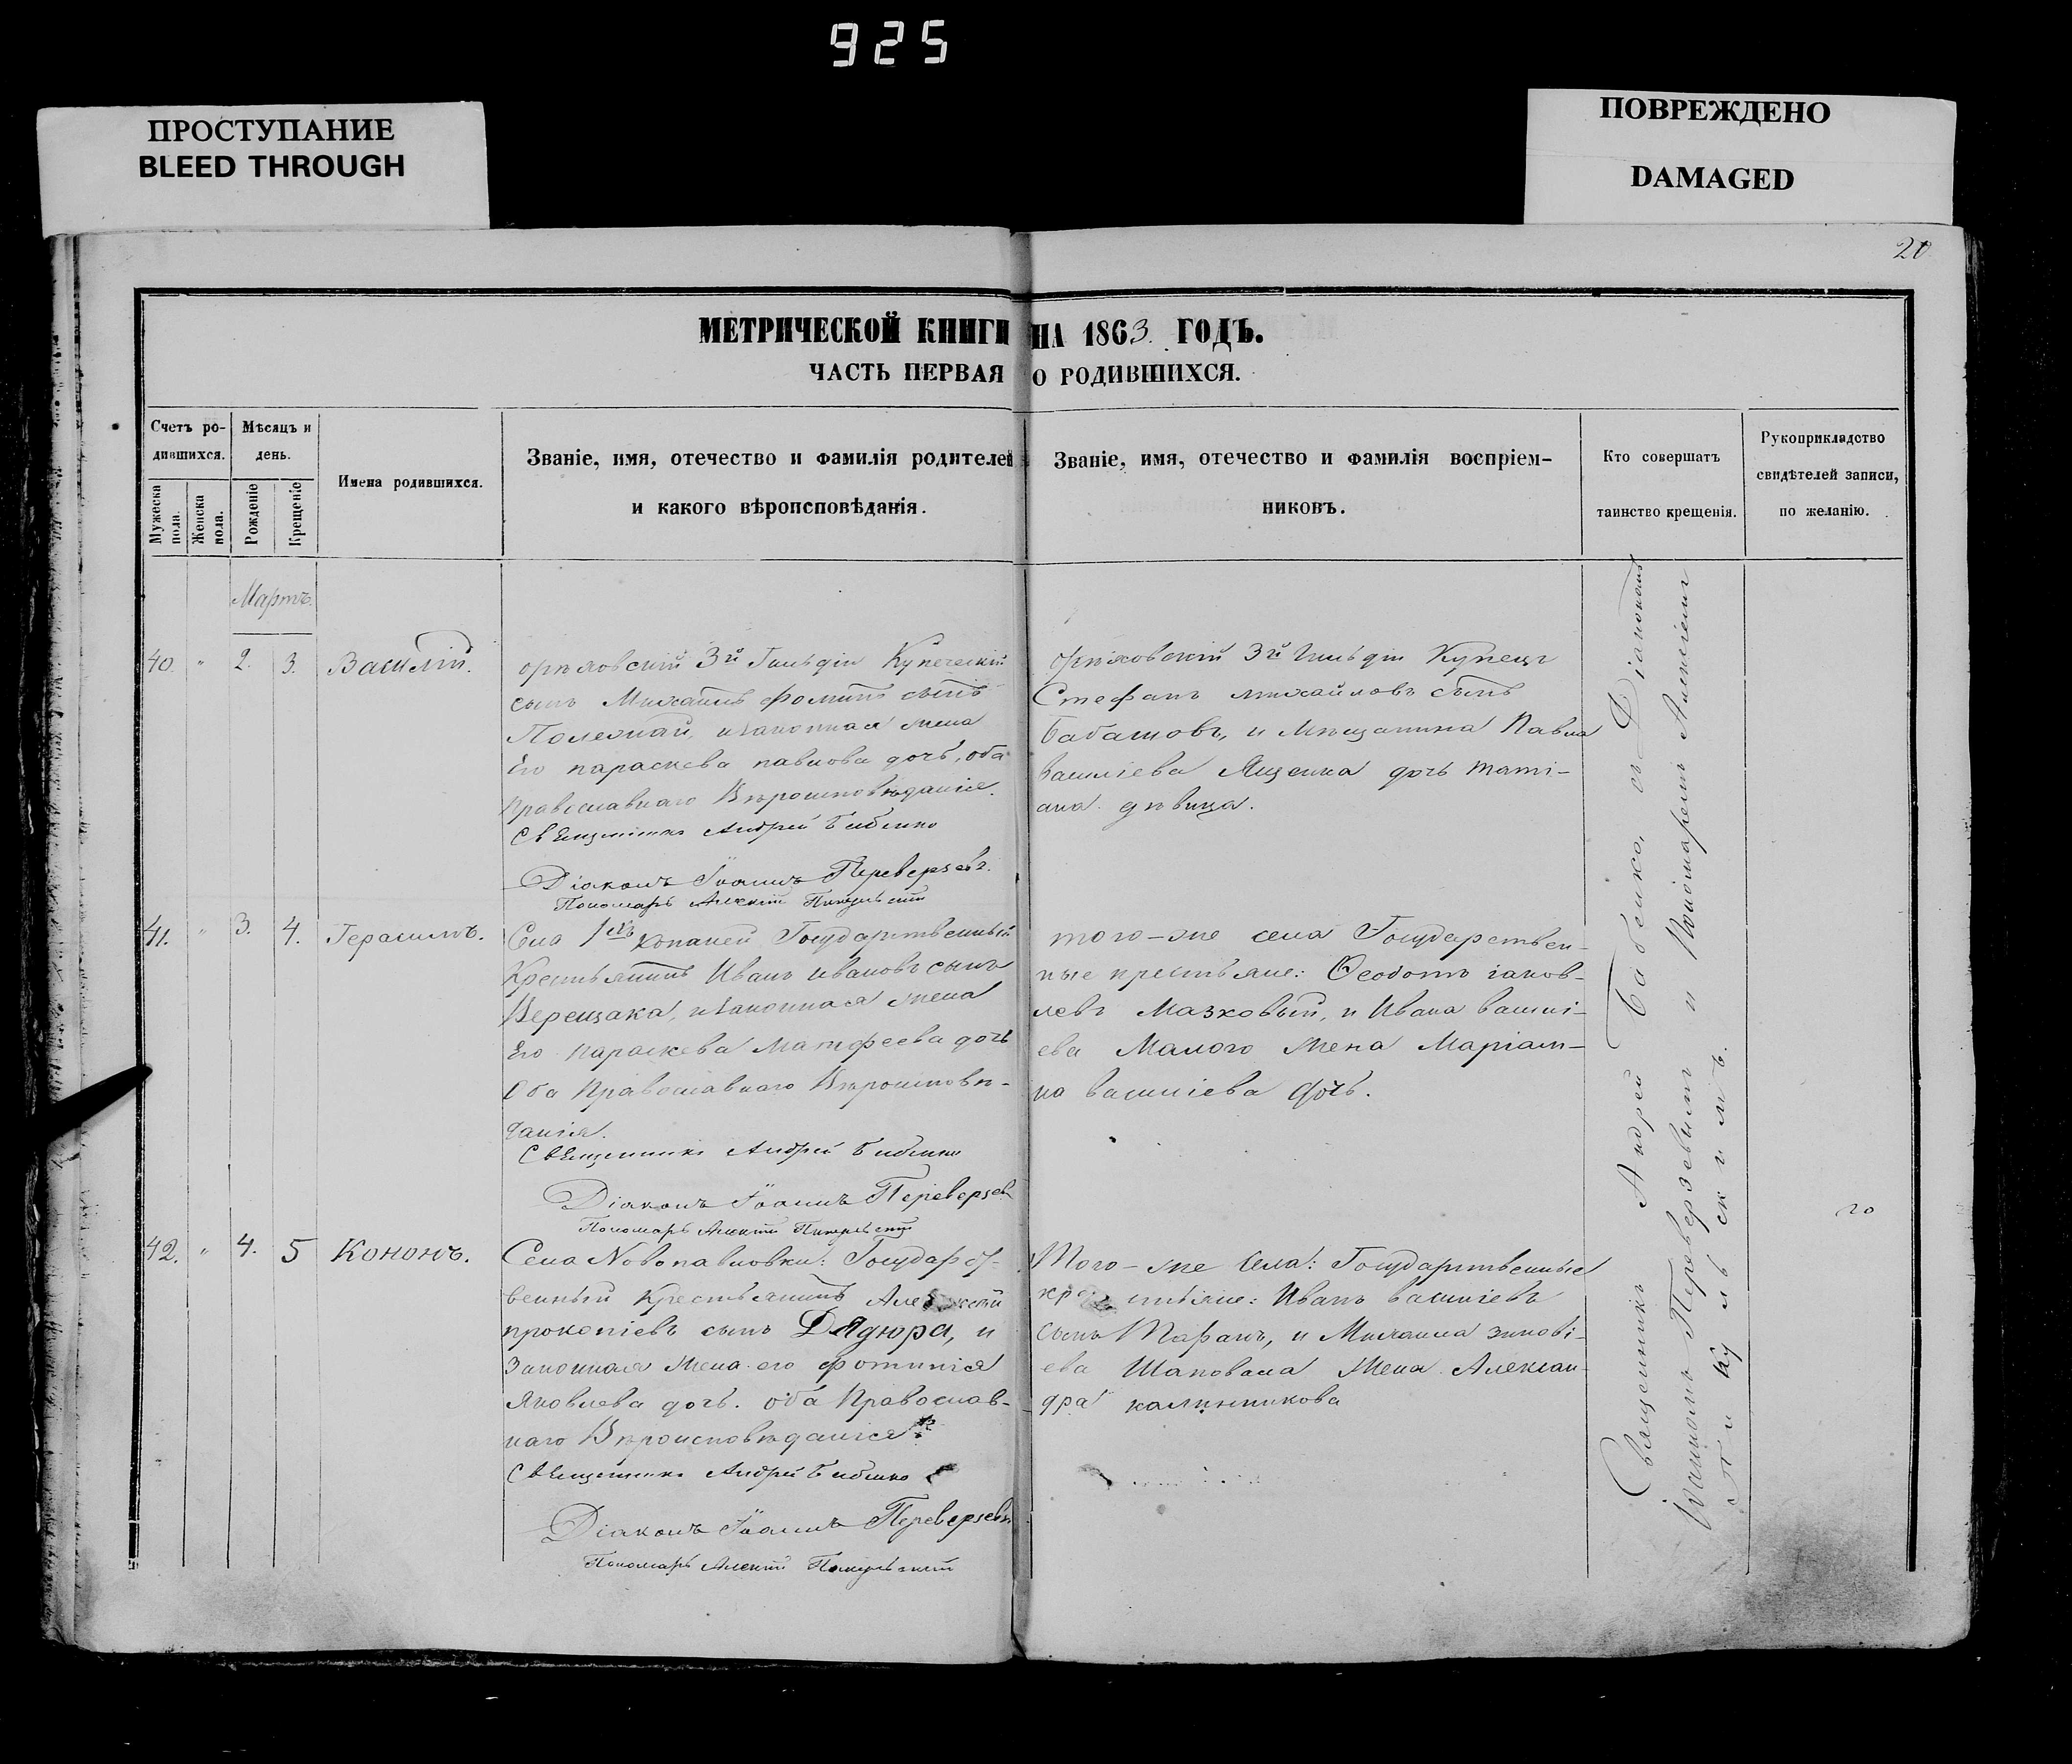 925
ПРОСТУПАНИЕ
BLEED THROUGH
ПОВРЕЖДЕНО
DAMAGED
20
МЕТРИЧЕСКОЙ КНИГИ НА 1863 ГОДЪ.
ЧАСТЬ ПЕРВАЯ О РОДИВШИХСЯ.
Счетъ ро-
дившихся.
Мужеска
пола.
Женска
пола.
Мѣсяцъ и
день.
Рожденіе
Крещеніе
Имена родившихся.
Званіе, имя, отечество и фамилія родителей
и какого вѣроисповѣданія.
Званіе, имя, отечество и фамилія воспріем-
никовъ.
Кто совершатъ
таинство крещенія.
Рукоприкладство
свидѣтелей записи,
по желанію.
Мартъ.
40. " 2. 3. Василій.
орѣховскій 3й Гильдіи Купеческій
сынъ Михаилъ Фоминъ сынъ
изаконная жена
Его параскева павлова дочь, оба
Православнаго Вѣроисповѣданія.
Священникъ Андрей Бабенко
Діаконъ Іоаннъ Переверзевъ.
Пономарь Алексій Пикульскій
орѣховскій 3й Гильдіи Купецъ
Стефанъ михайловъ сынъ
Бабашовъ, и Мѣщанина Павла
василіева Ященка дочь тати-
ана дѣвица.
41. " 3. 4. Герасимъ.
Села 1хъ Копаней Государственный
Крестьянинъ Иванъ ивановъ сынъ
Верещака, изаконная жена
Его параскева Матфеева дочь
Оба Православнаго Вѣроисповѣ-
данія.
Священникъ Андрей Бабенко
Діаконъ Іоаннъ Переверзевъ
Пономарь Алексій Пикульскій
того-же села Государствен-
ные крестьяне: Ѳеодотъ іаков-
левъ Мазковый, и Ивана васили-
ева Малого жена Маріам-
на василіева дочь.
42. " 4. 5 Кононъ.
Села Новопавловки: Государст-
венный Крестьянинъ Алексѣй
прокопіевъ сынъ Дядюра, и
Законная жена его фотинія
Яковлева дочь. оба Православ-
наго Вѣроисповѣданія
Священникъ Андрей Бабенко
Діаконъ Іоаннъ Переверзевъ
Пономарь Алексій Пикульскій
Того-же Села: Государственные
крестьяне: Иванъ василіевъ
сынъ Таранъ, и Михаила зинові-
ева Шаповала жена Алексан-
дра калинникова
Священникъ Андрей Бабенко, съ Діакономъ
Іоанномъ Переверзевымъ и Пономаремъ Алексіемъ
Пикульскимъ.
20